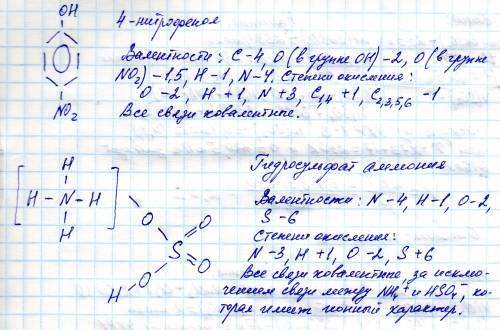 OH
4-нитрофенол
Валентности: C-4, O (в группе OH) -2, O (в группе
NO₂) -1,5, H-1, N-4. Степени окисления:
O -2, H +1, N +3, C₁,₄ +1, C₂,₃,₅,₆ -1
NO₂
Все связи ковалентные.
Гидросульфат аммония
H
H - N - H
H
O
O
S
O
O
H
Валентности: N-4, H-1, O-2,
S-6
Степени окисления:
N-3, H+1, O-2, S+6
Все связи ковалентные, за исклю-
чением связи между NH₄⁺ и HSO₄⁻, ко-
торая имеет ионный характер.